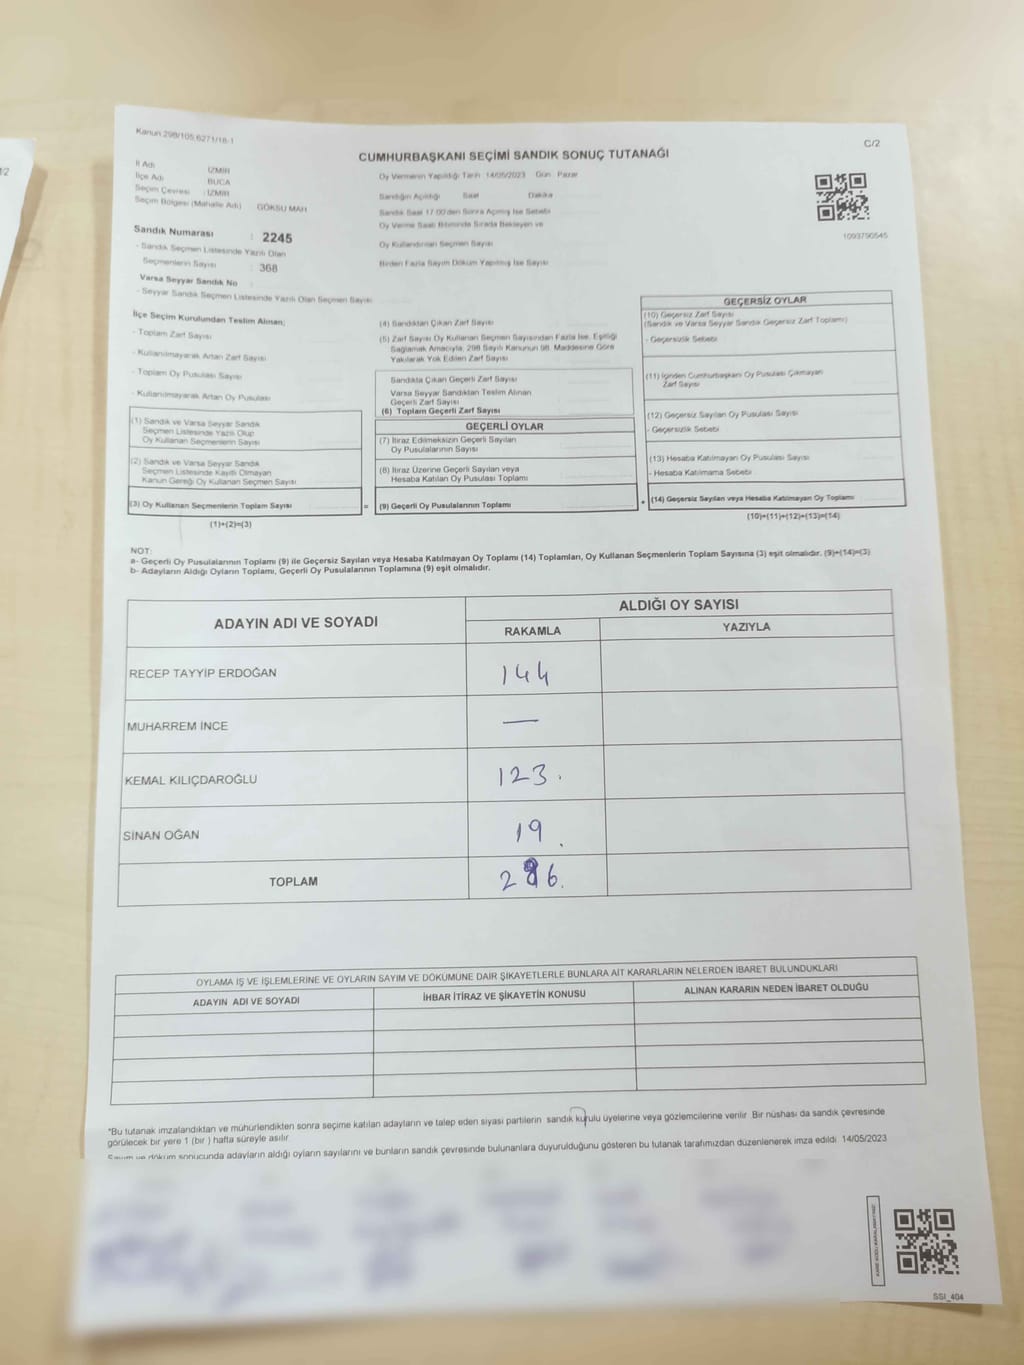 Kanun 298/105,6271/18-1
C/2
CUMHURBAŞKANI SEÇİMİ SANDIK SONUÇ TUTANAĞI
İl Adı : İZMİR
İlçe Adı : BUCA
Seçim Çevresi : İZMİR
Seçim Bölgesi (Mahalle Adı) GÖKSU MAH
Sandık Numarası : 2245
- Sandık Seçmen Listesinde Yazılı Olan
Seçmenlerin Sayısı : 368
Varsa Seyyar Sandık No :
- Seyyar Sandık Seçmen Listesinde Yazılı Olan Seçmen Sayısı
Oy Vermenin Yapıldığı Tarih 14/05/2023 Gün Pazar
Sandığın Açıldığı Saat Dakika
Sandık Saat 17.00'den Sonra Açılmış İse Sebebi
Oy Verme Saati Bitiminde Sırada Bekleyen ve
Oy Kullandırılan Seçmen Sayısı
Birden Fazla Sayım Döküm Yapılmış İse Sayısı
1093790545
İlçe Seçim Kurulundan Teslim Alınan;
- Toplam Zarf Sayısı
- Kullanılmayarak Artan Zarf Sayısı
- Toplam Oy Pusulası Sayısı
- Kullanılmayarak Artan Oy Pusulası
(1) Sandık ve Varsa Seyyar Sandık
Seçmen Listesinde Yazılı Olup
Oy Kullanan Seçmenlerin Sayısı
(2) Sandık ve Varsa Seyyar Sandık
Seçmen Listesinde Kayıtlı Olmayan
Kanun Gereği Oy Kullanan Seçmen Sayısı
(3) Oy Kullanan Seçmenlerin Toplam Sayısı
(1)+(2)=(3)
=
(4) Sandıktan Çıkan Zarf Sayısı
(5) Zarf Sayısı Oy Kullanan Seçmen Sayısından Fazla İse, Eşitliği
Sağlamak Amacıyla, 298 Sayılı Kanunun 98. Maddesine Göre
Yakılarak Yok Edilen Zarf Sayısı
Sandıkta Çıkan Geçerli Zarf Sayısı
Varsa Seyyar Sandıktan Teslim Alınan
Geçerli Zarf Sayısı
(6) Toplam Geçerli Zarf Sayısı
GEÇERLİ OYLAR
(7) İtiraz Edilmeksizin Geçerli Sayılan
Oy Pusulalarının Sayısı
(8) İtiraz Üzerine Geçerli Sayılan veya
Hesaba Katılan Oy Pusulası Toplamı
(9) Geçerli Oy Pusulalarının Toplamı
+
GEÇERSİZ OYLAR
(10) Geçersiz Zarf Sayısı
(Sandık ve Varsa Seyyar Sandık Geçersiz Zarf Toplamı)
- Geçersizlik Sebebi
(11) İçinden Cumhurbaşkanı Oy Pusulası Çıkmayan
Zarf Sayısı
(12) Geçersiz Sayılan Oy Pusulası Sayısı
- Geçersizlik Sebebi
(13) Hesaba Katılmayan Oy Pusulası Sayısı
- Hesaba Katılmama Sebebi
(14) Geçersiz Sayılan veya Hesaba Katılmayan Oy Toplamı
(10)+(11)+(12)+(13)=(14)
NOT:
a- Geçerli Oy Pusulalarının Toplamı (9) ile Geçersiz Sayılan veya Hesaba Katılmayan Oy Toplamı (14) Toplamları, Oy Kullanan Seçmenlerin Toplam Sayısına (3) eşit olmalıdır. (9)+(14)=(3)
b- Adayların Aldığı Oyların Toplamı, Geçerli Oy Pusulalarının Toplamına (9) eşit olmalıdır.
ADAYIN ADI VE SOYADI
ALDIĞI OY SAYISI
RAKAMLA
YAZIYLA
RECEP TAYYİP ERDOĞAN 144
MUHARREM İNCE —
KEMAL KILIÇDAROĞLU 123.
SİNAN OĞAN 19.
TOPLAM 286.
OYLAMA İŞ VE İŞLEMLERİNE VE OYLARIN SAYIM VE DÖKÜMÜNE DAİR ŞİKAYETLERLE BUNLARA AİT KARARLARIN NELERDEN İBARET BULUNDUKLARI
ADAYIN ADI VE SOYADI
İHBAR İTİRAZ VE ŞİKAYETİN KONUSU
ALINAN KARARIN NEDEN İBARET OLDUĞU
*Bu tutanak imzalandıktan ve mühürlendikten sonra seçime katılan adayların ve talep eden siyasi partilerin sandık kurulu üyelerine veya gözlemcilerine verilir. Bir nüshası da sandık çevresinde
görülecek bir yere 1 (bir ) hafta süreyle asılır.
Sayım ve döküm sonucunda adayların aldığı oyların sayılarını ve bunların sandık çevresinde bulunanlara duyurulduğunu gösteren bu tutanak tarafımızdan düzenlenerek imza edildi 14/05/2023
SSI_404